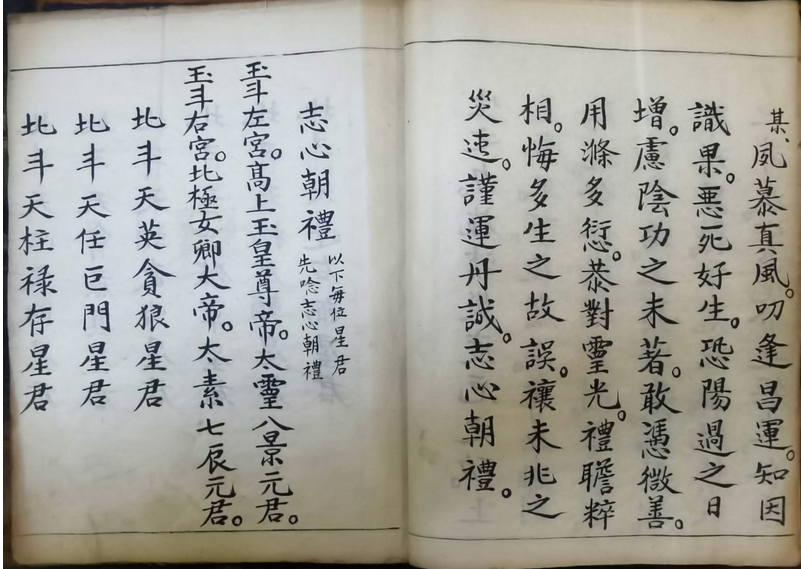 某、夙慕真風。叨逢昌運。知因
識果。惡死好生。恐陽過之日
增。慮陰功之未著。敢憑微善。
用滌多愆。恭對霊光。禮瞻粹
相。悔多生之故誤。禳未兆之
災迍。謹運丹誠。志心朝禮。
志心朝禮
以下每位星君
先唸志心朝禮
玉斗左宮。髙上玉皇尊帝。太霊八景元君。
玉斗右宮。北極女卿大帝。太素七辰元君。
北斗天英貪狼星君
北斗天任巨門星君
北斗天柱禄存星君